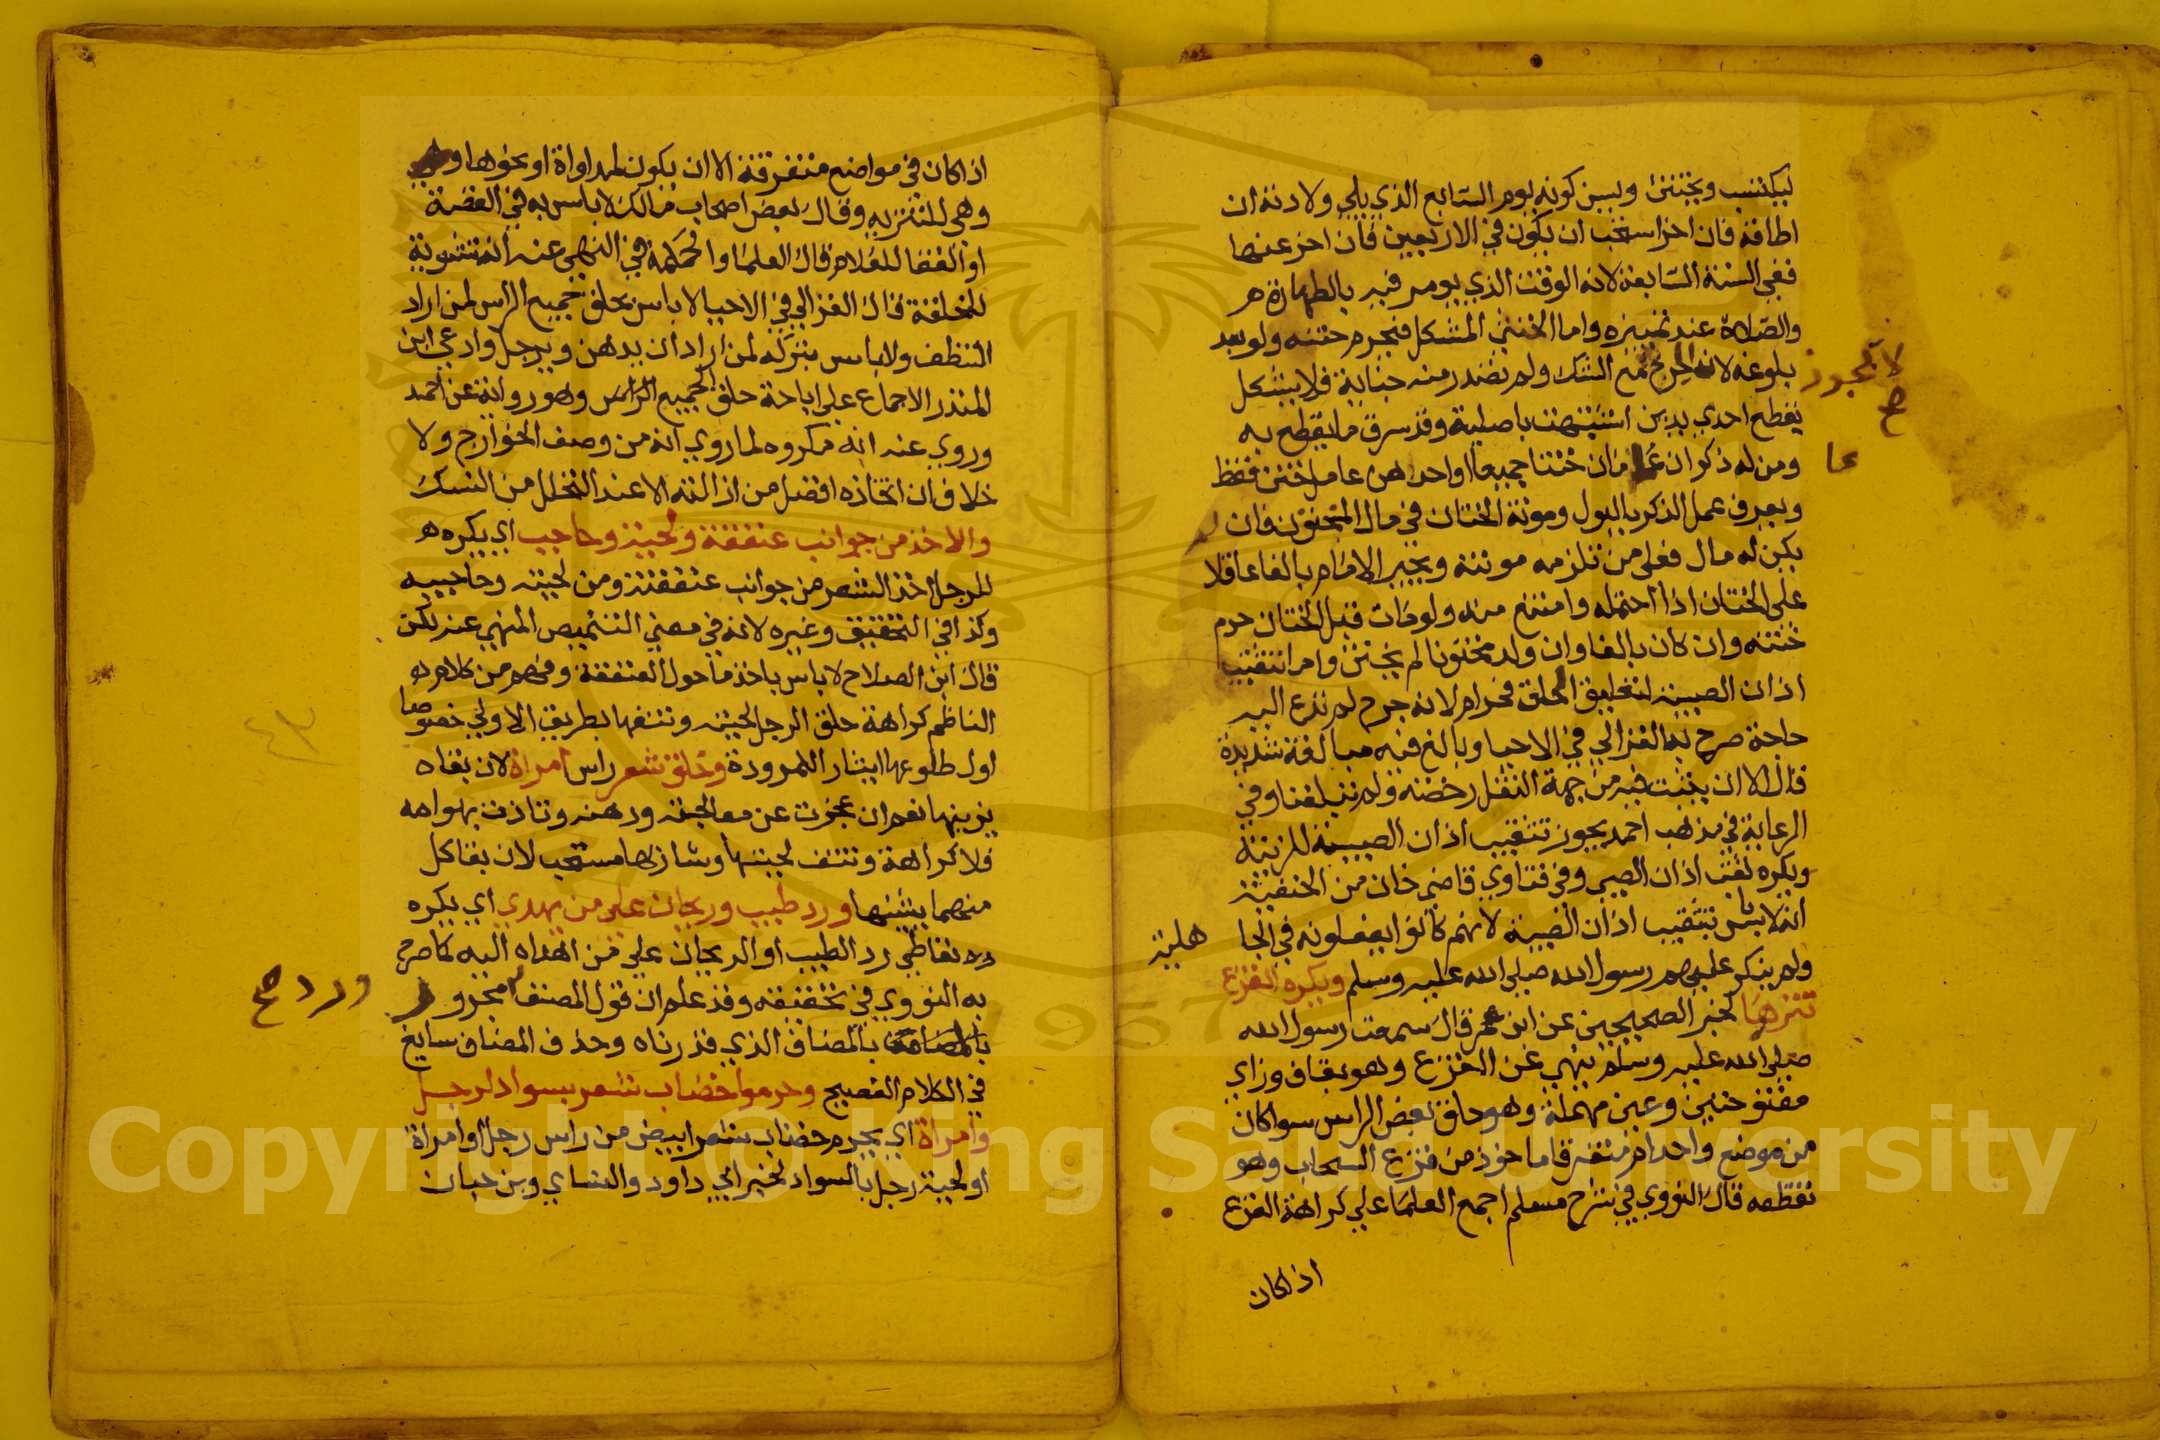 ليكتسب ويختتن ويسن كونه يوم السابع الذي يلي ولادته ان
اطاقه فان اخر استحب ان يكون في الاربعين فان اخر عنها
ففي السنة السابعة لانه الوقت الذي يومر فيه بالطهارة
والصلاة عند تمييزه واما الخنثى المشكل فيحرم ختنه ولو بعد
بلوغه لان الجرح مع الشك ولم تصدر منه جناية فلا يشكل
لا يجوز
صح
بقطع احدي يدين اشتبهت باصلية وقد سرق ما يقطع به
ومن له ذكران عاملان ختنا جميعا او احدهما عامل ختن فقط
عا
ويعرف عمل الذكر بالبول ومونة الختان في مال المختون فان لم
يكن له مال فعلى من تلزمه مونته ويجبر الامام بالغا عاقلا
على الختان اذا احتمله وامتنع منه ولو مات قبل الختان حرم
ختنه وان كان بالغا وان ولد مختونا لم يختتن واما تثقيب
اذان الصبية لتعليق الحلق فحرام لانه جرح لم تدع اليه
حاجة صرح به الغزالي في الاحيا وبالغ فيه مبالغة شديدة
قال الا ان يثبت فيه من جهة النقل رخصة ولم تبلغنا وفي
الرعاية في مذهب احمد يجوز تثقيب اذان الصبية للزينة
ويكره ثقب اذان الصبي وفي فتاوي قاضي خان من الحنفية
انه لا باس بتثقيب اذان الصبية لانهم كانوا يفعلونه في الجا
هلية
ولم ينكر عليهم رسول الله صلى الله عليه وسلم ويكره القزع
تنزها لخبر الصحيحين عن ابن عمر قال سمعت رسول الله
صلى الله عليه وسلم ينهي عن القزع وهو بقاف وزاي
مفتوحتين وعين مهملة وهو حلق بعض الراس سوا كان
من موضع واحد ام متفرقا ماخوذ من قزع السحاب وهو
تقطعه قال النووي في شرح مسلم اجمع العلما على كراهة القزع
اذا كان
اذا كان في مواضع متفرقة الا ان يكون لمداواة او نحوها
وهي للتنزيه وقال بعض اصحاب مالك لا باس به في القصة
او القفا للغلام قال العلما والحكمة في النهي عنه انه تشويه
للخلقة قال الغزالي في الاحيا لا باس بحلق جميع الراس لمن اراد
التنظف ولا باس بتركه لمن اراد ان يدهن ويرجل وادعي ابن
المنذر الاجماع على اباحة حلق جميع الراس وهو رواية عن احمد
وروي عنه انه مكروه لما روي انه من وصف الخوارج ولا
خلاف ان اتخاذه افضل من ازالته الا عند التحلل من النسك
والاخذ من جوانب عنفقة ولحية وحاجب اي يكره
للرجل اخذ الشعر من جوانب عنفقته ومن لحيته وحاجبيه
وكذا في التحقيق وغيره لانه في معني التنميص المنهي عنه لكن
قال ابن الصلاح لا باس باخذ ما حول العنفقة وفهم من كلام
الناظم كراهة حلق الرجل لحيته ونتفها بطريق الاولي خصوصا
اول طلوعها ايثارا للمرودة وحلق شعر راس امراة لان بقاه
يزينها نعم ان عجزت عن معالجته ودهنه وتاذت بهوامه
فلا كراهة ونتف لحيتها وشاربها مستحب لان بقا كل
منهما يشينها ورد طيب وريحان على من يهدي اي يكره
تعاطي رد الطيب او الريحان على من اهداه اليه كما صرح
به النووي في تحقيقه وقد علم ان قول المصنف مجرور
ورد صح
بالمضاف الذي قدرناه وحذف المضاف سايغ
في الكلام الفصيح وحرموا خضاب شعر بسواد لرجل
وامراة اي يحرم خضاب شعر ابيض من راس رجل او امراة
او لحية رجل بالسواد لخبر ابي داود والنساي وبن حبان
1957
Copyright © King Saud University